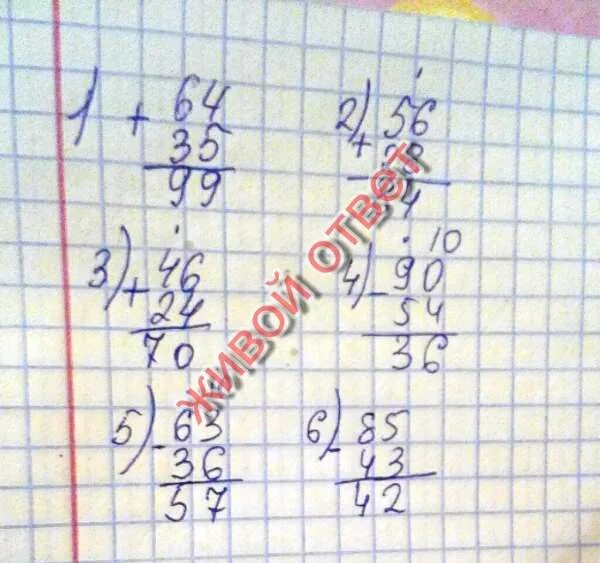 1) + 64
35
99
2) + 56
4
3) + 46
24
70
10
4) - 90
54
36
5) - 63
36
57
6) - 85
43
42
ЖИВОЙ ОТВЕТ